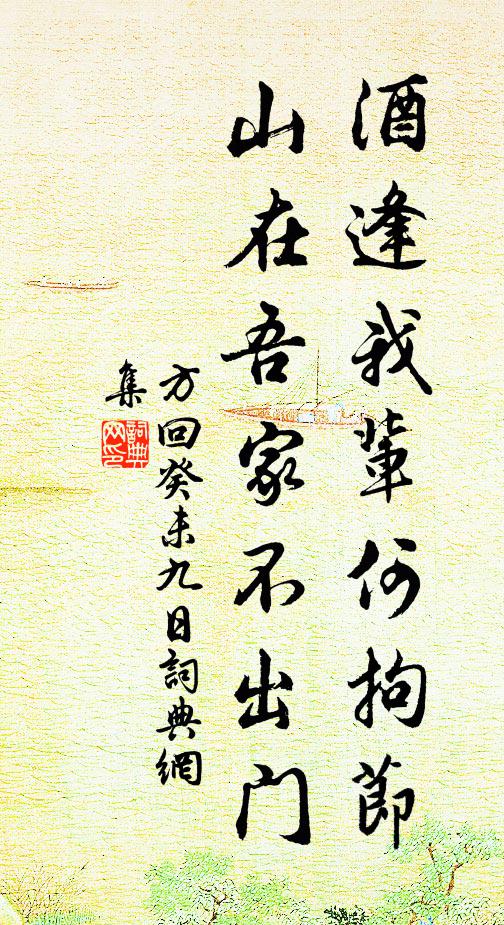 酒逢我輩何拘節
山在吾家不出門
方回癸未九日詞典網
集
詞典
网印